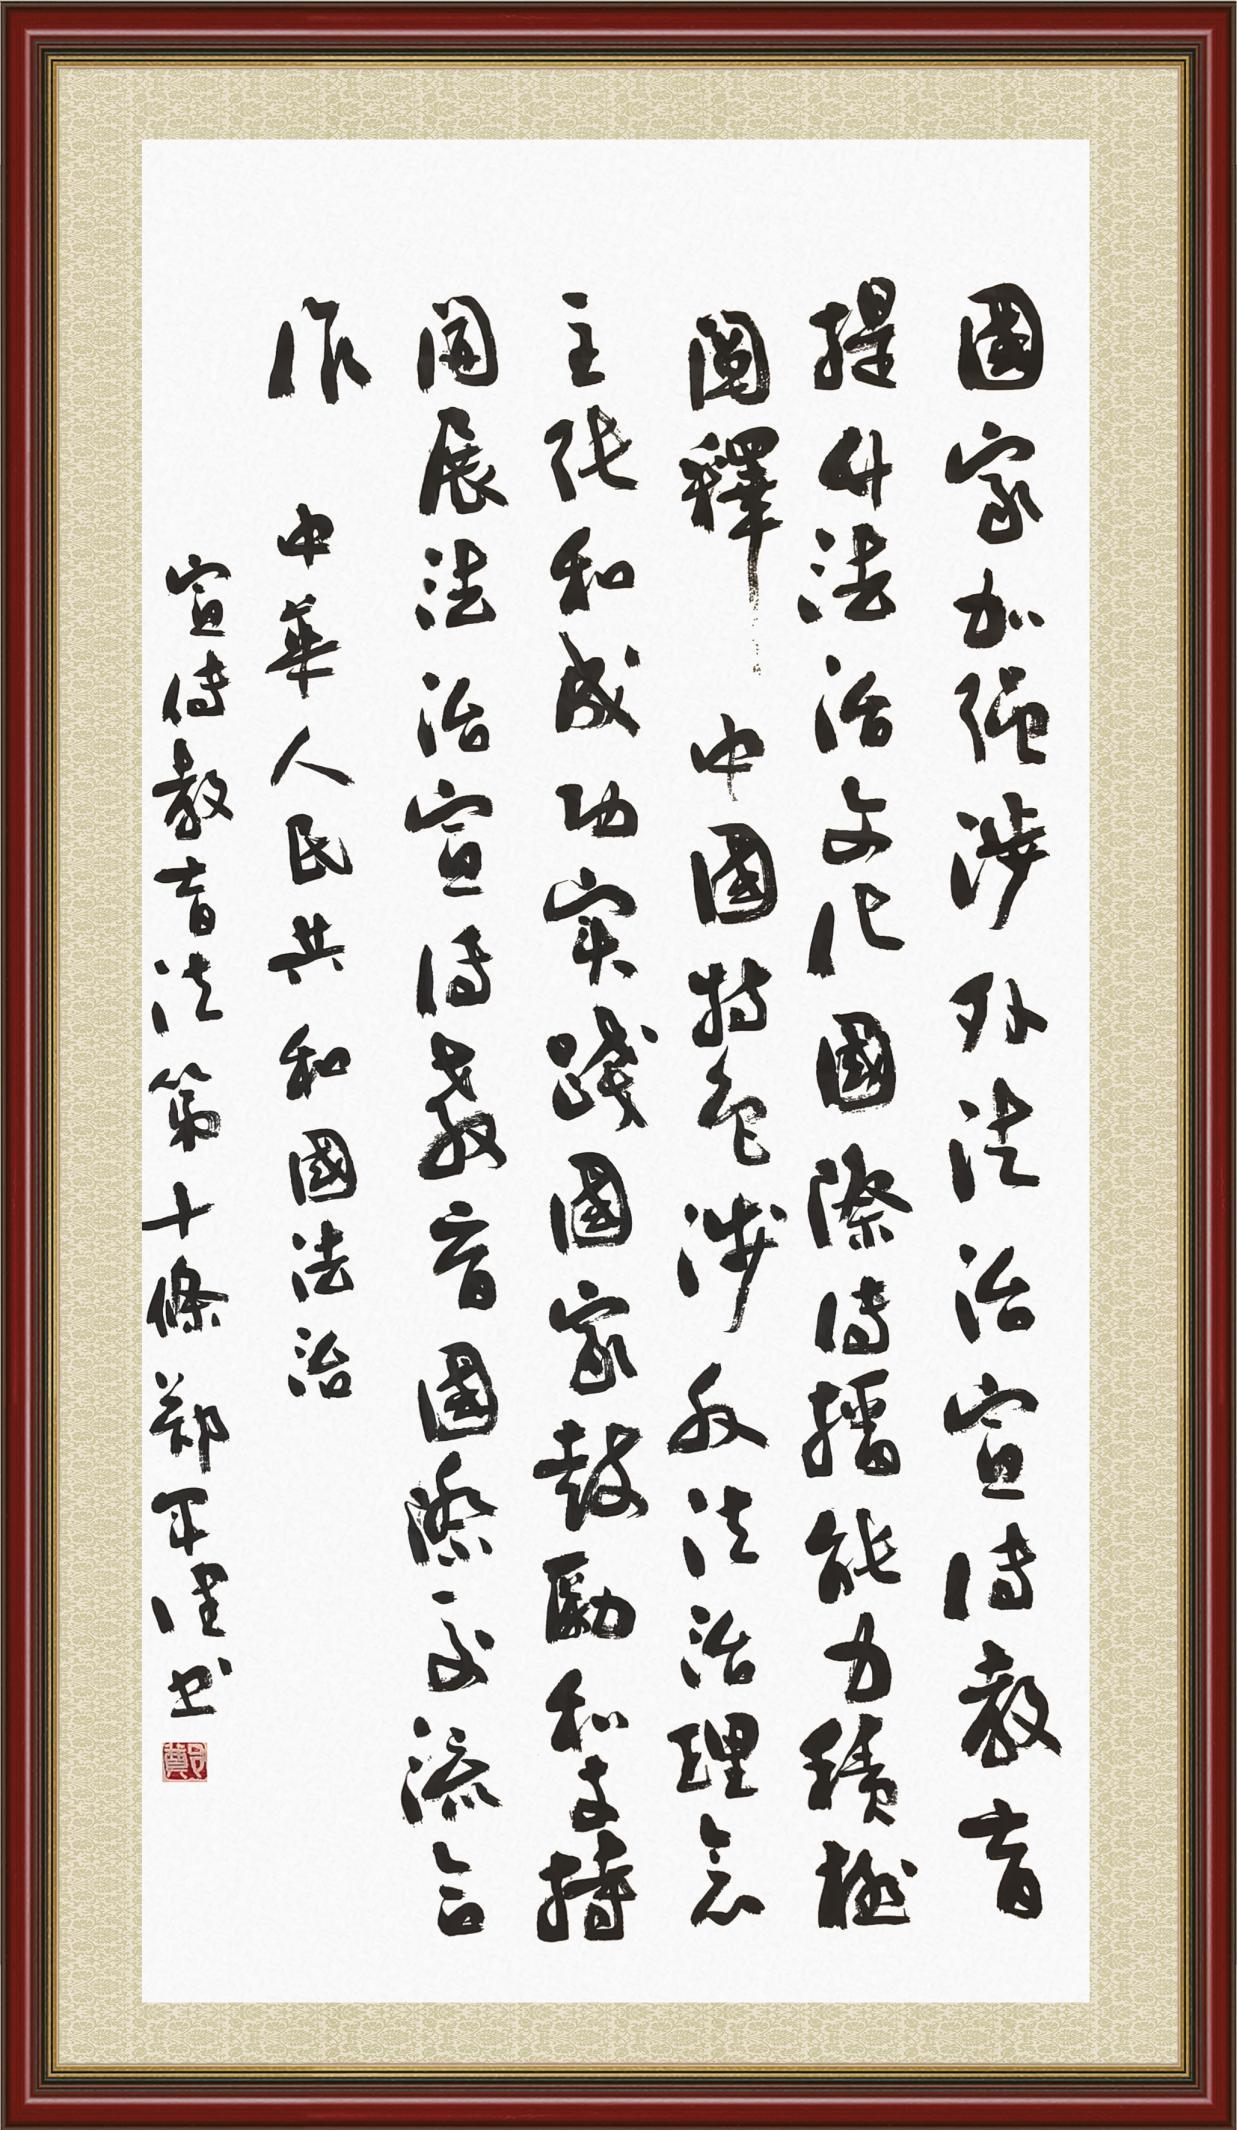 國家加强涉外法治宣傳教育
提升法治文化國際傳播能力積極
闡釋中國特色涉外法治理念
主張和成功实踐國家鼓勵和支持
開展法治宣傳教育國際交流合
作 中華人民共和國法治
宣傳教育法第十條 鄭軍健书